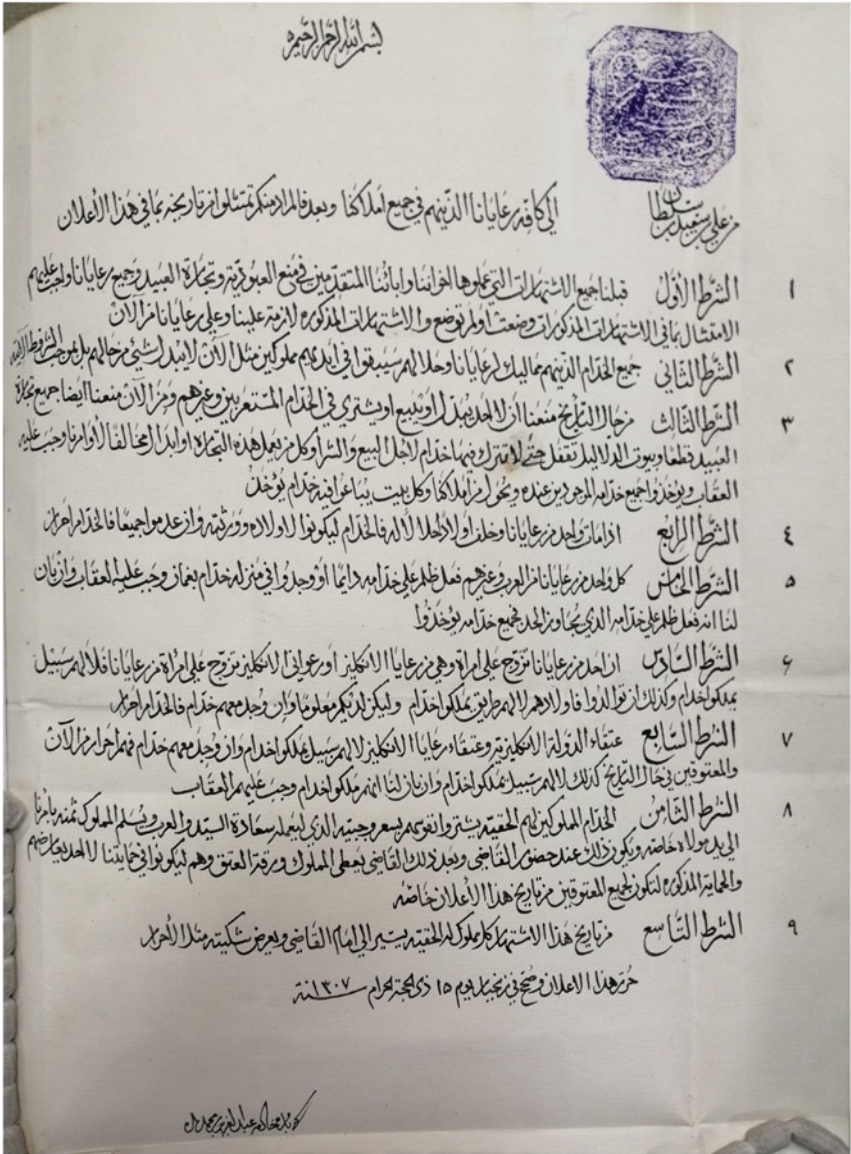 بسم الله الرحمن الرحيم
من علي بن سعيد بن سلطان الى كافة رعايانا الذينهم في جميع املاكنا وبعد فالمراد منكم تمتثلوا من تاريخه بما في هذا الأعلان
١ الشرط الأول قبلنا جميع الاشتهارات التي عملوها اخواننا وابائنا المتقدمين في منع العبودية وتجارة العبيد وجميع رعايانا واجب عليهم
الامتثال بما في الاشتهارات المذكورات وضعت اولم توضع والاشتهارات المذكوره لازمة علينا وعلى رعايانا من الآن
٢ الشرط الثاني جميع الخدام الذينهم مماليك لرعايانا وحلالهم سيبقوا في ايديهم مملوكين مثل الآن لايبدل شئ من حالهم بل بموجب الشروط الآتية
٣ الشرط الثالث من حال التأريخ منعنا ان لااحد يبدل او يبيع او يشتري في الخدام المستعربين وغيرهم ومن الآن منعنا ايضا جميع تجارة
العبيد قطعا وبيوت الدلاليل تقفل حتى لا تترك فيها خدام لاجل البيع والشرا وكل من يعمل هذه التجاره او ابدا مخالفا لأوامرنا وجب عليه
العقاب ويوخذوا جميع خدامه الموجودين عنده ويحول من املاكنا وكل بيت يباعوا فيه خدام يؤخذ
٤ الشرط الرابع اذا مات واحد من رعايانا وخلف اولادا حلالا له فالخدام ليكونوا لاولاده وورثته وان عدموا جميعا فالخدام احرار
٥ الشرط الخامس كل واحد من رعايانا من العرب وغيرهم فعل ظلم على خدامه دايما او وجدوا في منزله خدام بغماز وجب عليه العقاب وان بان
لنا انه فعل ظلم على خدامه الذي يجاوز الحد فجميع خدامه يوخذوا
٦ الشرط السادس ان احد من رعايانا تزوج على امراة وهي من رعايا الانكليز او رعوا في الانكليز تزوج على امرأة من رعايانا فلا لهم سبيل
بملكوا خدام وكذلك ان توالدوا فاولادهم لالهم طريق بملكوا خدام وليكن لديكم معلوما وان وجد معهم خدام فالخدام احرار
٧ الشرط السابع عتقاء الدولة الانكليزية وعتقاء رعايا الانكليز لالهم سبيل بملكوا خدام وان وجد معهم خدام فهم احرار من الآن
والمعتوقين في حال التاريخ كذلك لالهم سبيل بملكوا خدام وان بان لنا انهم ملكوا خدام وجب عليهم العقاب
٨ الشرط الثامن الخدام المملوكين لهم الحقيه يشتروا نفوسهم بسعر وجبيته الذي ليعمله سعادة السيد والعرب ويسلم المملوك ثمنه بامرنا
الى يد مولاه خاصه ويكون ذلك عند حضور القاضي وبعد ذلك القاضي يعطي المملوك ورقة العتق وهم ليكونوا في حمايتنا لااحد يعارضهم
والحماية المذكوره لتكون لجميع المعتوقين من تاريخ هذا الأعلان خاصه
٩ الشرط التاسع من تاريخ هذا الاشتهار كل مملوك له الحقيه يسير الى امام القاضي ويعرض شكيته مثل الأحرار
حرر هذا الاعلان وصح في زنجبار يوم ١٥ ذي الحجة الحرام سنة ١٣٠٧